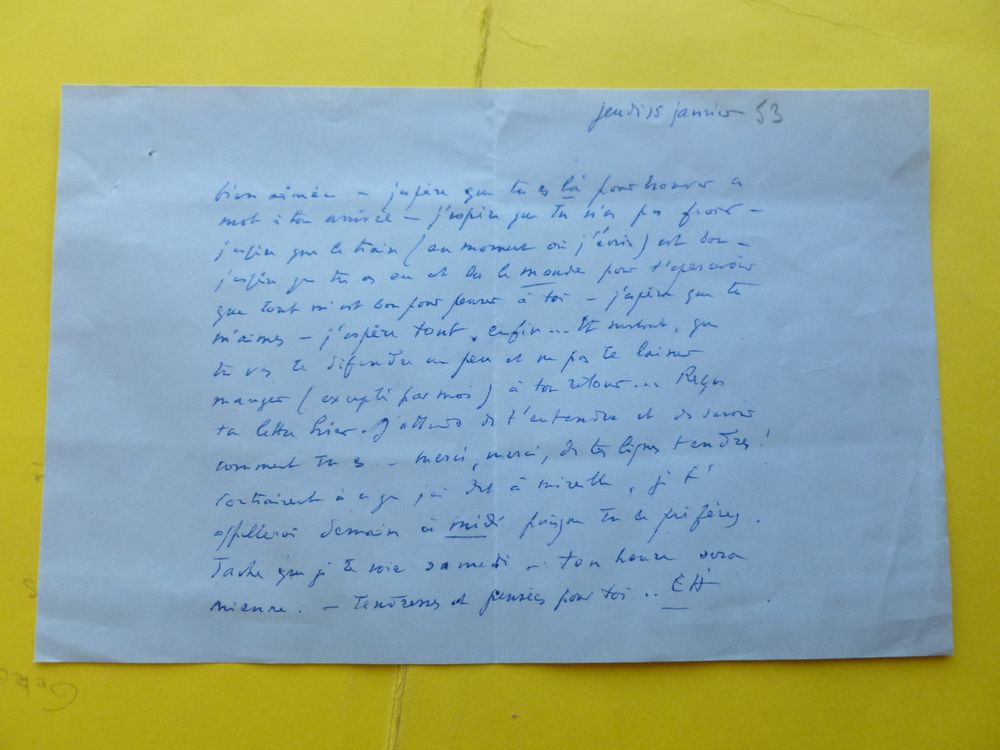 jeudi 15 janvier 53
bien aimée – j'espère que tu es là pour trouver ce
mot à ton arrivée – j'espère que tu n'as pas froid –
j'espère que le train (au moment où j'écris) est bon –
j'espère que tu as eu et lu le monde pour t'apercevoir
que tout m'est bon pour penser à toi – j'espère que tu
m'aimes – j'espère tout, enfin... Et surtout, que
tu vas te défendre un peu et ne pas te laisser
manger (excepté par moi) à ton retour... Reçu
ta lettre hier. J'attends de t'entendre et de savoir
comment tu es. – merci, merci, de tes lignes tendres!
Contrairement à ce que j'ai dit à mireille, je t'
appellerai demain à midi puisque tu le préfères.
Tache que je te voie samedi – ton heure sera
mienne. – Tendresses et pensées pour toi .. EH